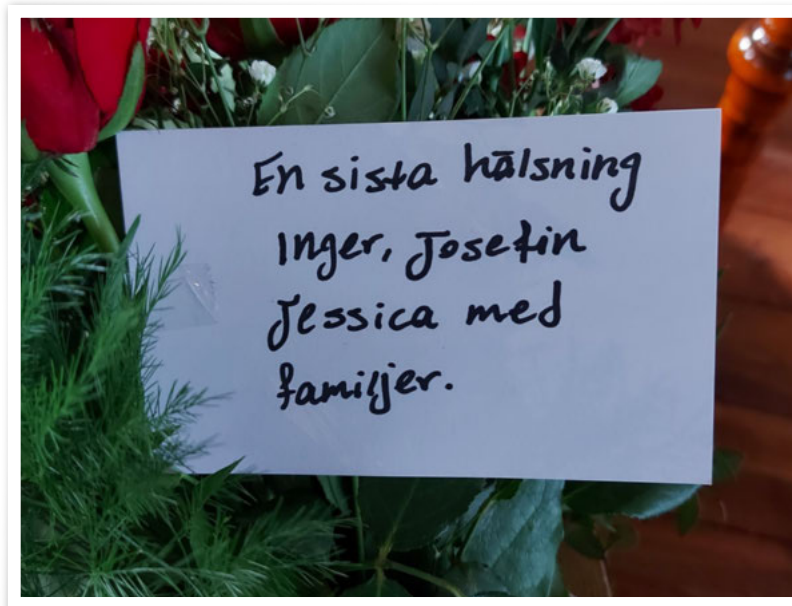 En sista hälsning
Inger, Josefin
Jessica med
familjer.